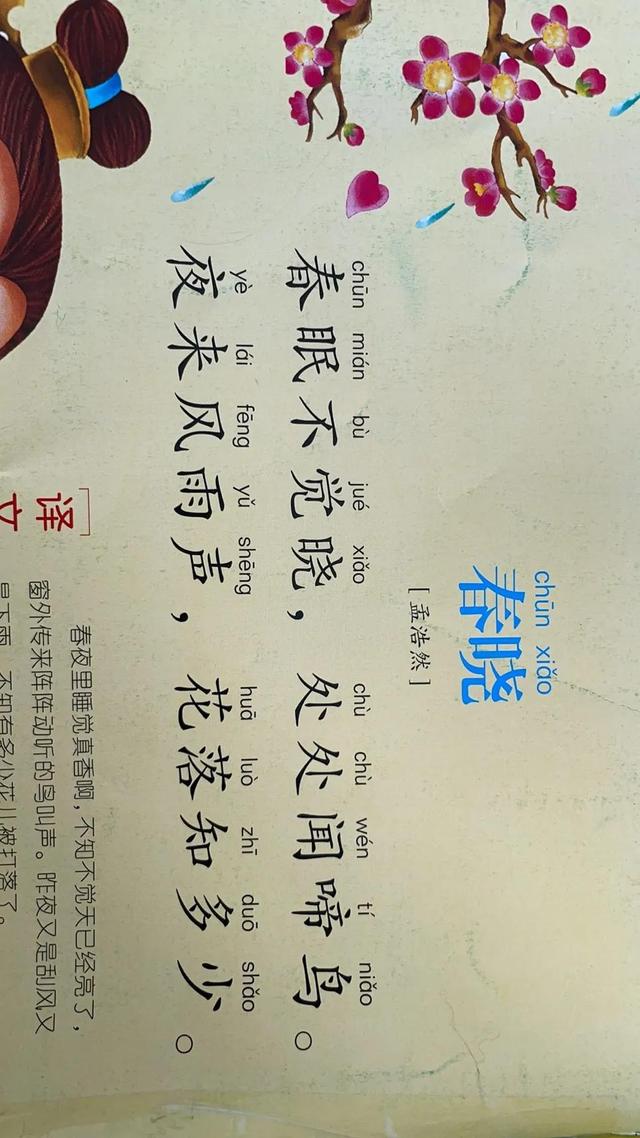 chūn xiǎo
春晓
[孟浩然]
chūn mián bù jué xiǎo chù chù wén tí niǎo
春眠不觉晓，处处闻啼鸟。
yè lái fēng yǔ shēng huā luò zhī duō shǎo
夜来风雨声，花落知多少。
译文
春夜里睡觉真香啊，不知不觉天已经亮了，
窗外传来阵阵动听的鸟叫声。昨夜又是刮风又
是下雨，不知有多少花儿被打落了。